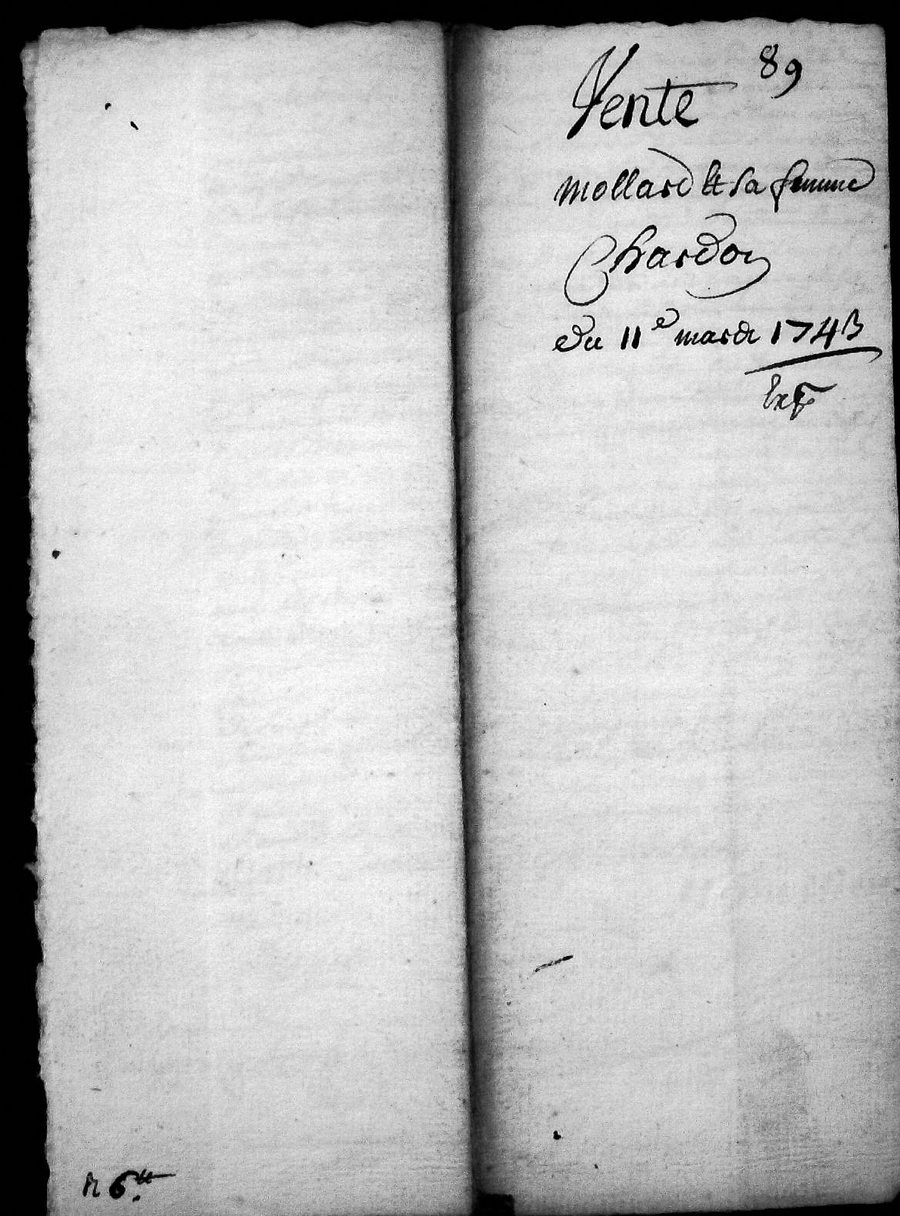 89
Vente
mollard et sa femme
Chardon
du 11e mars 1743
Exp
R 6tt